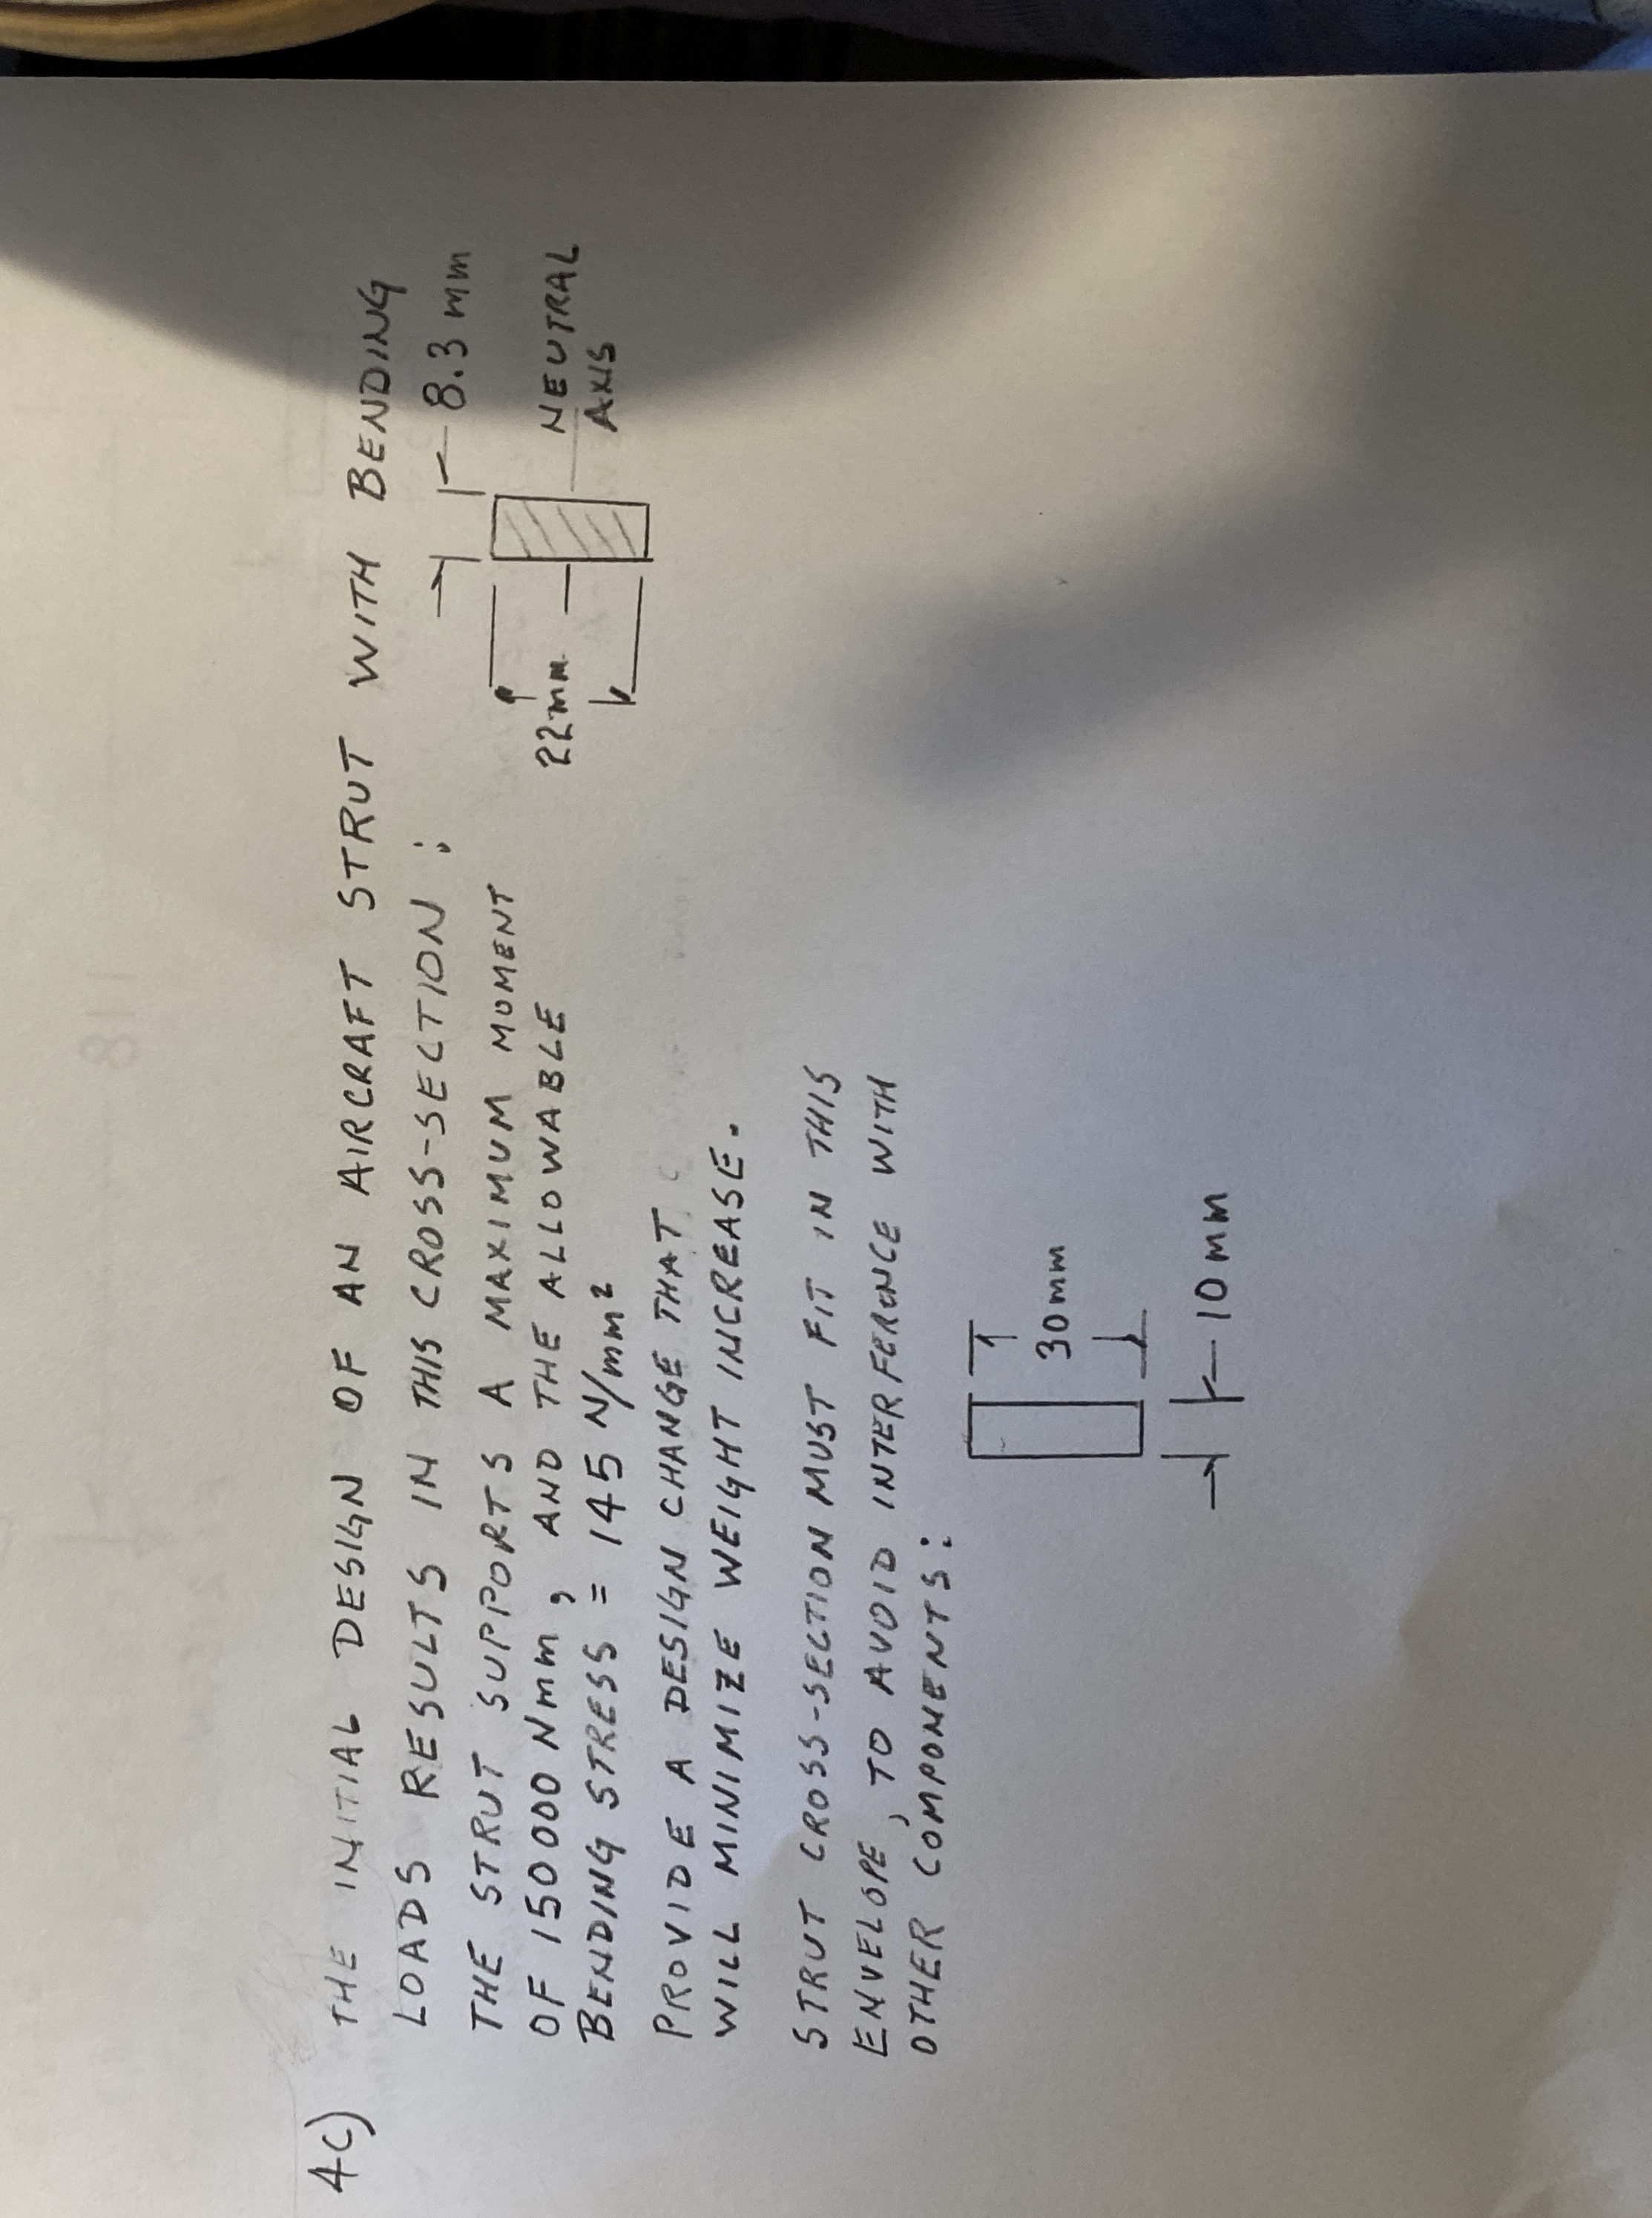 4C) THE INITIAL DESIGN OF AN AIRCRAFT STRUT WITH BENDING
LOADS RESULTS IN THIS CROSS-SECTION:
8.3 mm
THE STRUT SUPPORTS A MAXIMUM MOMENT
OF 150000 Nmm, AND THE ALLOWABLE
BENDING STRESS = 145 N/mm²
22mm
NEUTRAL
AXIS
PROVIDE A DESIGN CHANGE THAT
WILL MINIMIZE WEIGHT INCREASE.
STRUT CROSS-SECTION MUST FIT IN THIS
ENVELOPE, TO AVOID INTERFERENCE WITH
OTHER COMPONENTS:
30mm
10 mm